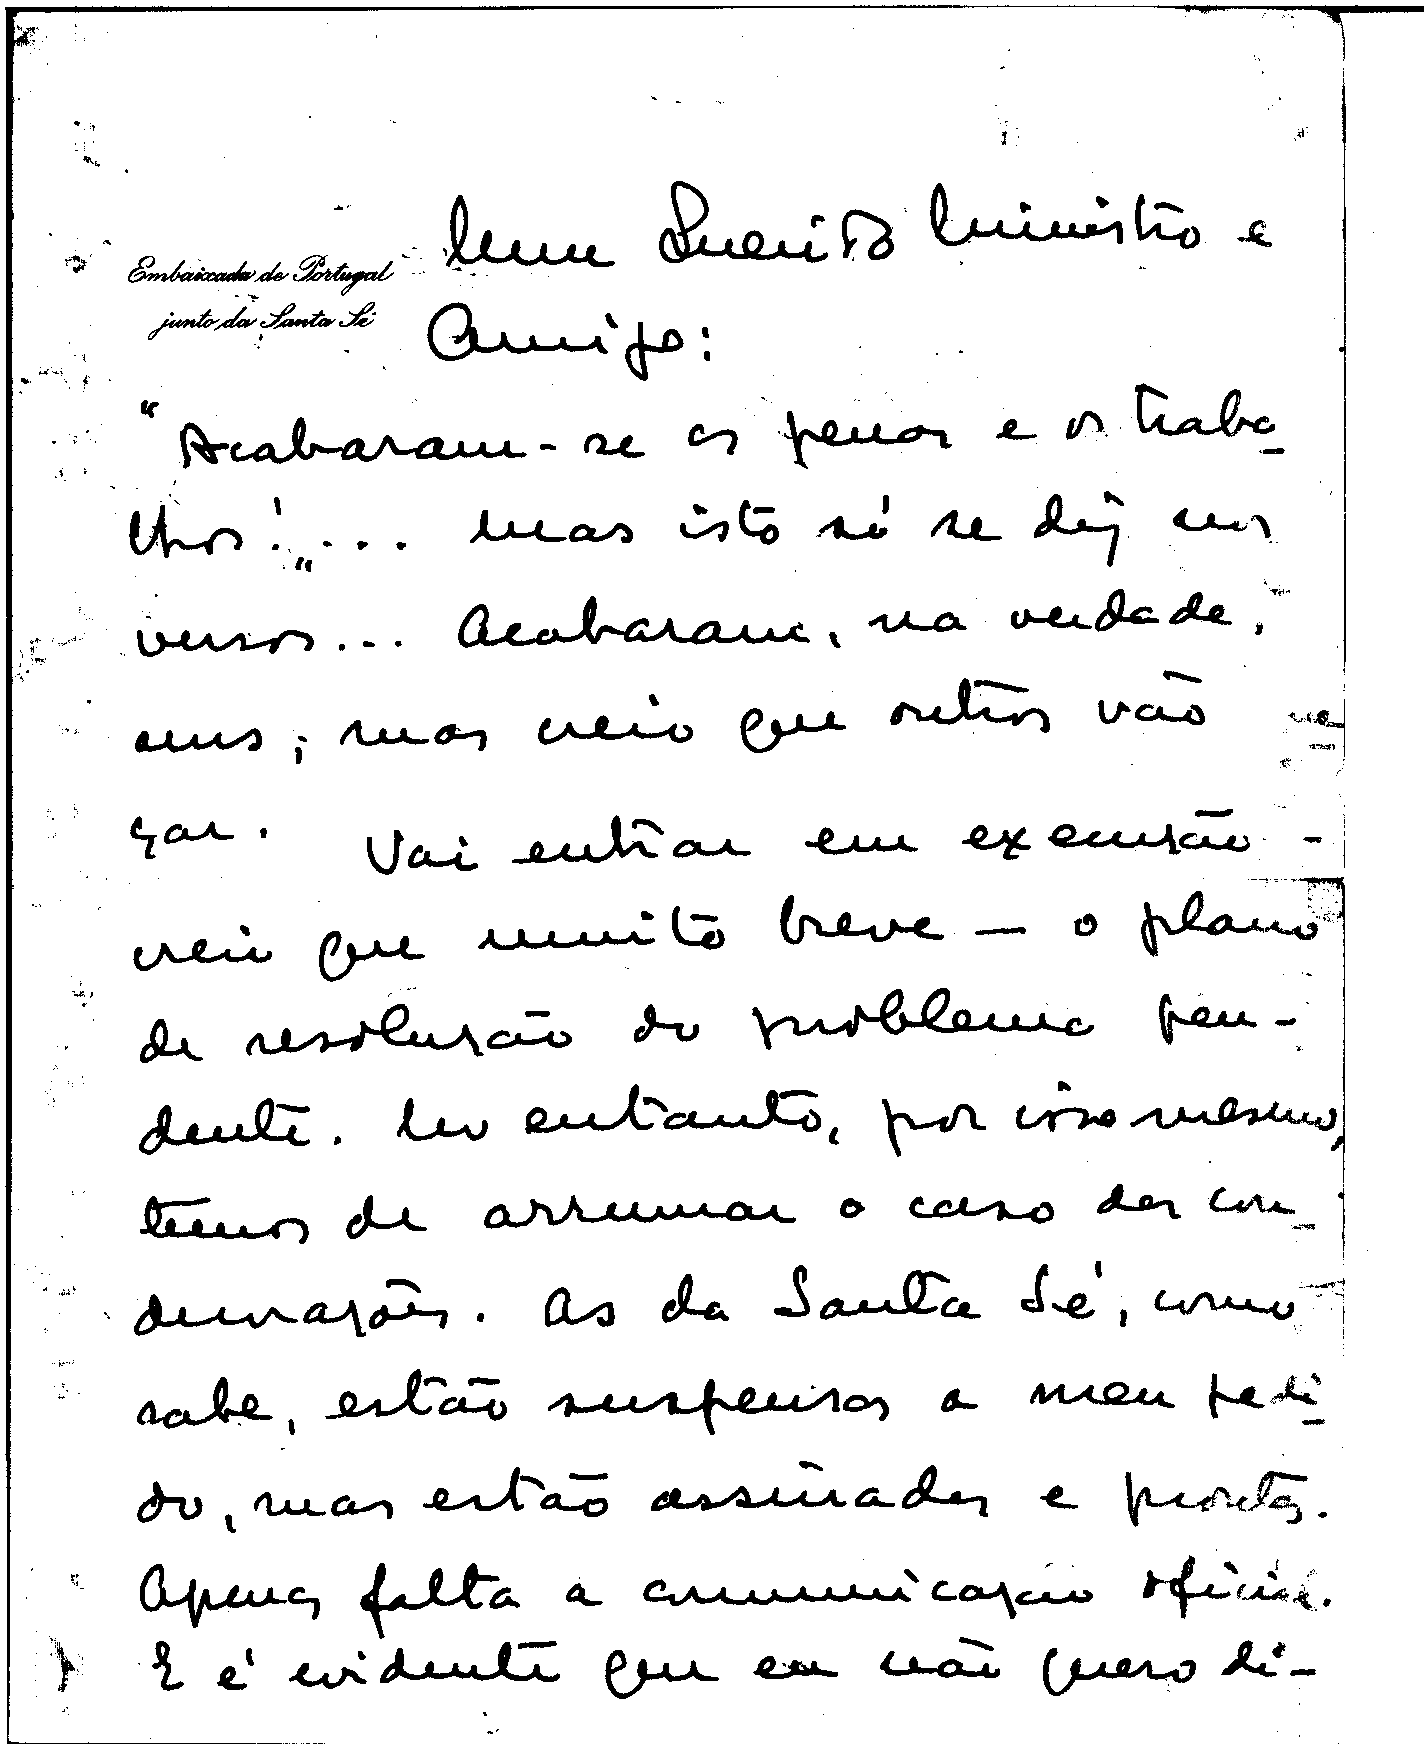 Embaixada de Portugal
junto da Santa Sé
Meu querido Ministro e
Amigo:
"Acabaram-se as penas e os traba-
lhos!"... Mas isto só se diz nos
versos... Acabaram, na verdade,
uns; mas creio que outros vão
çar. Vai entrar em execução -
creio que muito breve — o plano
de resolução do problema pen-
dente. No entanto, por isso mesmo,
temos de arrumar o caso das con-
decorações. As da Santa Sé, como
sabe, estão suspensas a meu pedi-
do, mas estão assinadas e prontas.
Apenas falta a comunicação oficial.
E é evidente que eu não quero di-